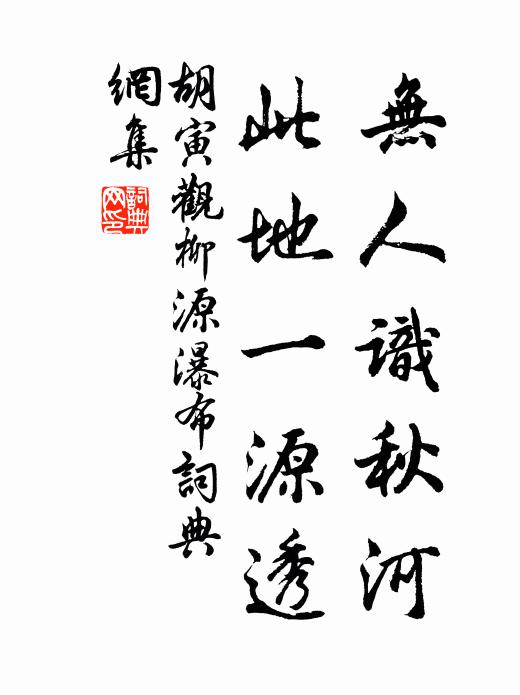 無人識秋河
此地一源透
胡寅觀柳源瀑布詞典
網集
詞典網印